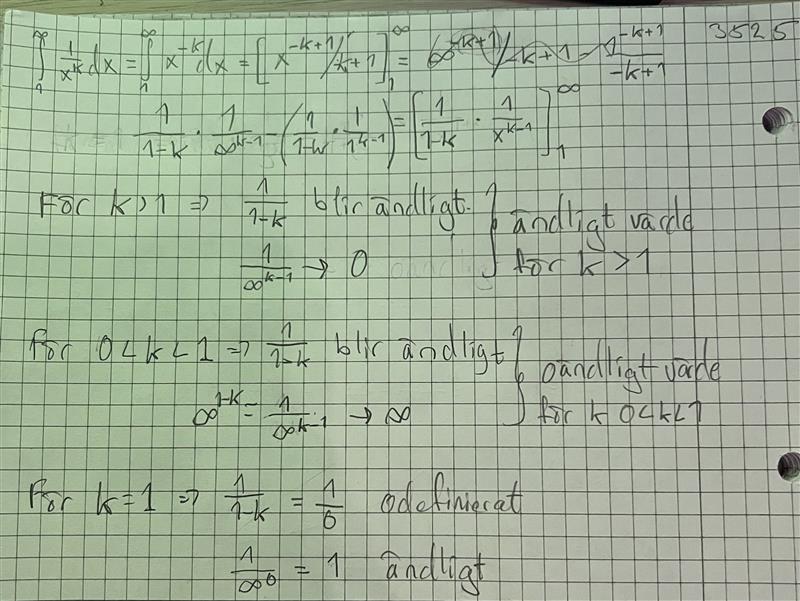 3525
∫₁^∞ 1/x^k dx = ∫₁^∞ x^(-k) dx = [x^(-k+1)/-k+1]₁^∞ = ∞^(-k+1)/-k+1 - 1^(-k+1)/-k+1
1/(1-k) · 1/∞^(k-1) - (1/(1-k) · 1/1^(k-1)) = [1/(1-k) · 1/x^(k-1)]₁^∞
För k>1 ⇒ 1/(1-k) blir ändligt. } ändligt värde
1/∞^(k-1) → 0 för k>1
För 0<k<1 ⇒ 1/(1-k) blir ändligt } oändligt värde
∞^(1-k) = 1/∞^(k-1) → ∞ för k 0<k<1
För k=1 ⇒ 1/(1-k) = 1/0 odefinierat
1/∞^0 = 1 ändligt